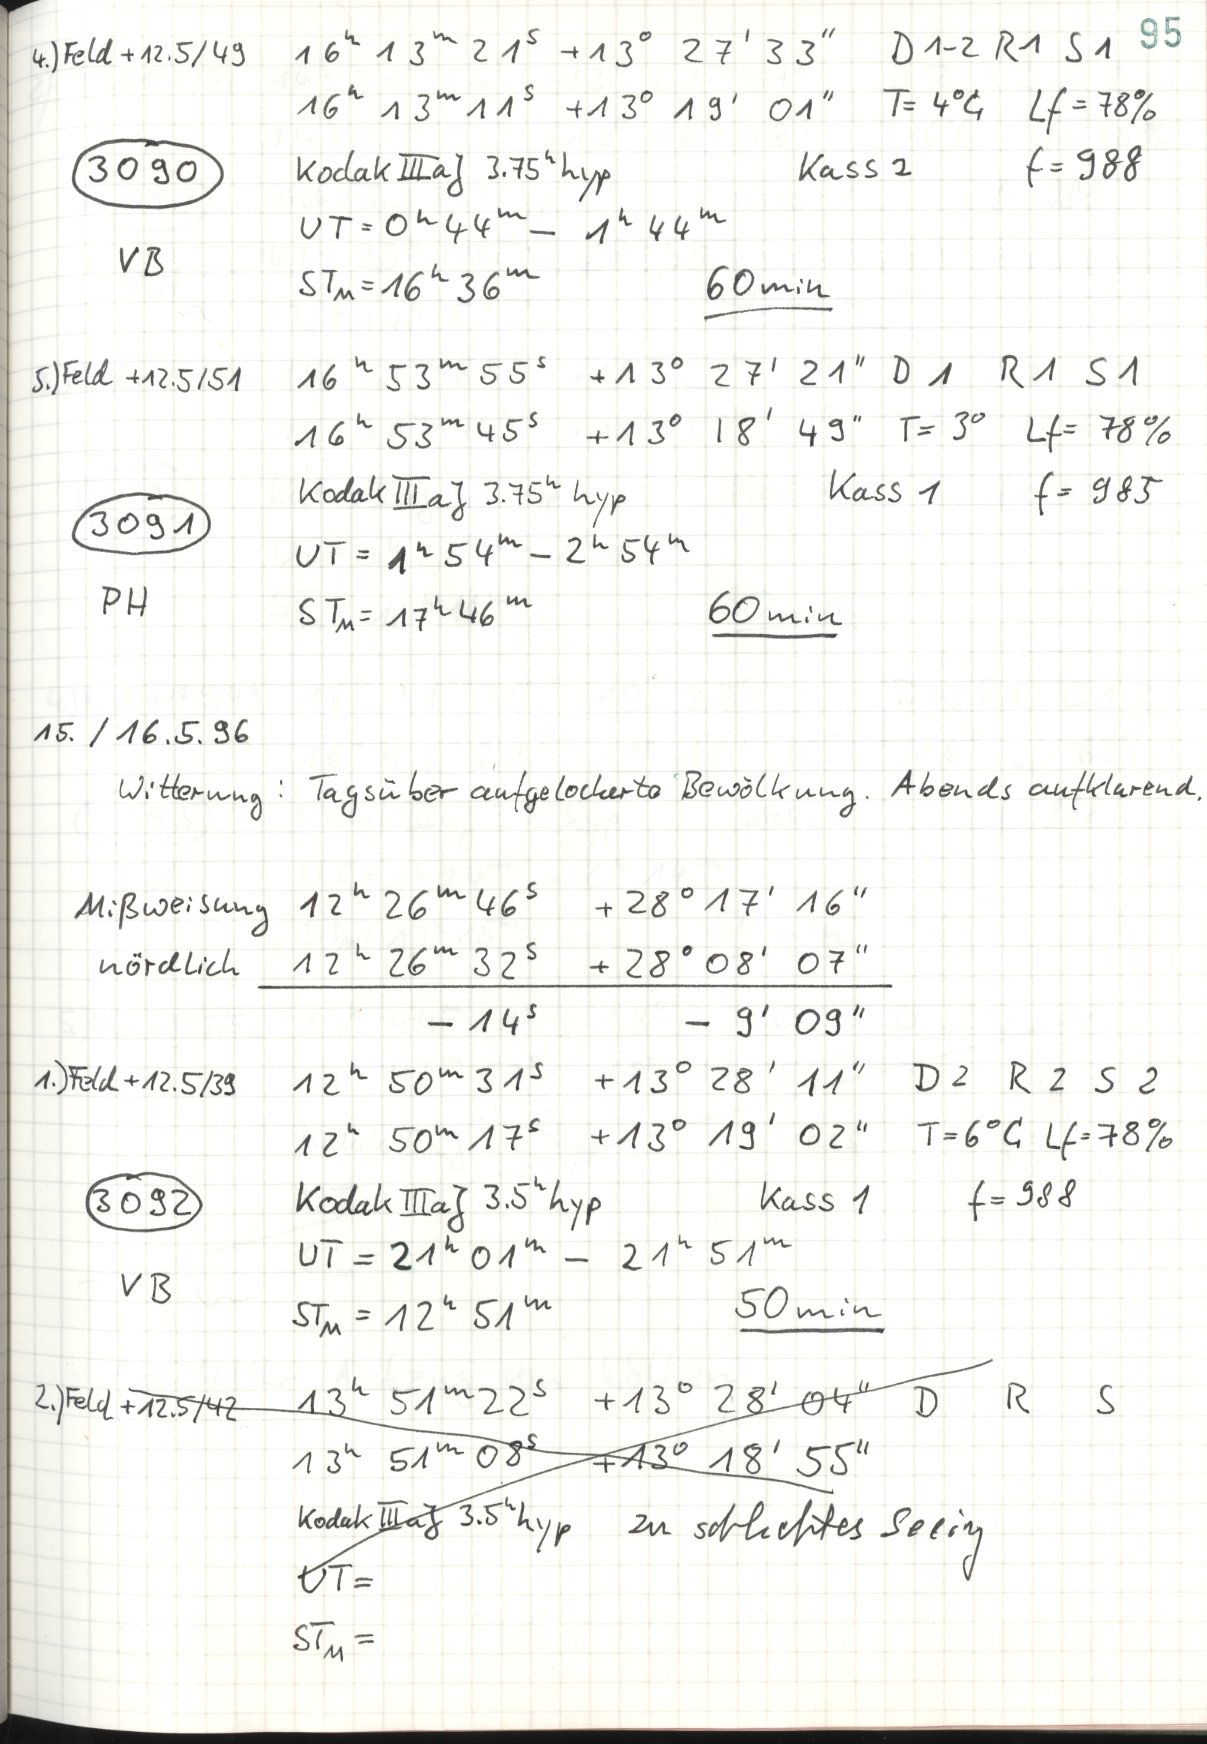 95
4.) Feld +12.5/49 16ʰ 13ᵐ 21ˢ +13° 27' 33" D 1-2 R1 S1
16ʰ 13ᵐ 11ˢ +13° 19' 01" T= 4°C Lf = 78%
3090 Kodak IIIaJ 3.75ʰ hyp Kass 2 f = 988
UT = 0ʰ 44ᵐ – 1ʰ 44ᵐ
VB
STM = 16ʰ 36ᵐ 60 min
5.) Feld +12.5/51 16ʰ 53ᵐ 55ˢ +13° 27' 21" D 1 R 1 S 1
16ʰ 53ᵐ 45ˢ +13° 18' 49" T= 3° Lf= 78%
Kodak IIIaJ 3.75ʰ hyp Kass 1 f = 985
3091
UT = 1ʰ 54ᵐ – 2ʰ 54ᵐ
PH STM = 17ʰ 46ᵐ 60 min
15. / 16.5.96
Witterung : Tagsüber aufgelockerte Bewölkung. Abends aufklarend.
Mißweisung 12ʰ 26ᵐ 46ˢ +28° 17' 16"
nördlich 12ʰ 26ᵐ 32ˢ +28° 08' 07"
– 14ˢ – 9' 09"
1.) Feld +12.5/39 12ʰ 50ᵐ 31ˢ +13° 28' 11" D 2 R 2 S 2
12ʰ 50ᵐ 17ˢ +13° 19' 02" T=6°C Lf=78%
3092 Kodak IIIaJ 3.5ʰ hyp Kass 1 f = 988
UT = 21ʰ 01ᵐ – 21ʰ 51ᵐ
VB
STM = 12ʰ 51ᵐ 50 min
2.) Feld +12.5/42 13ʰ 51ᵐ 22ˢ +13° 28' 04" D R S
13ʰ 51ᵐ 08ˢ +13° 18' 55"
Kodak IIIaJ 3.5ʰ hyp zu schlechtes Seeing
UT =
STM =